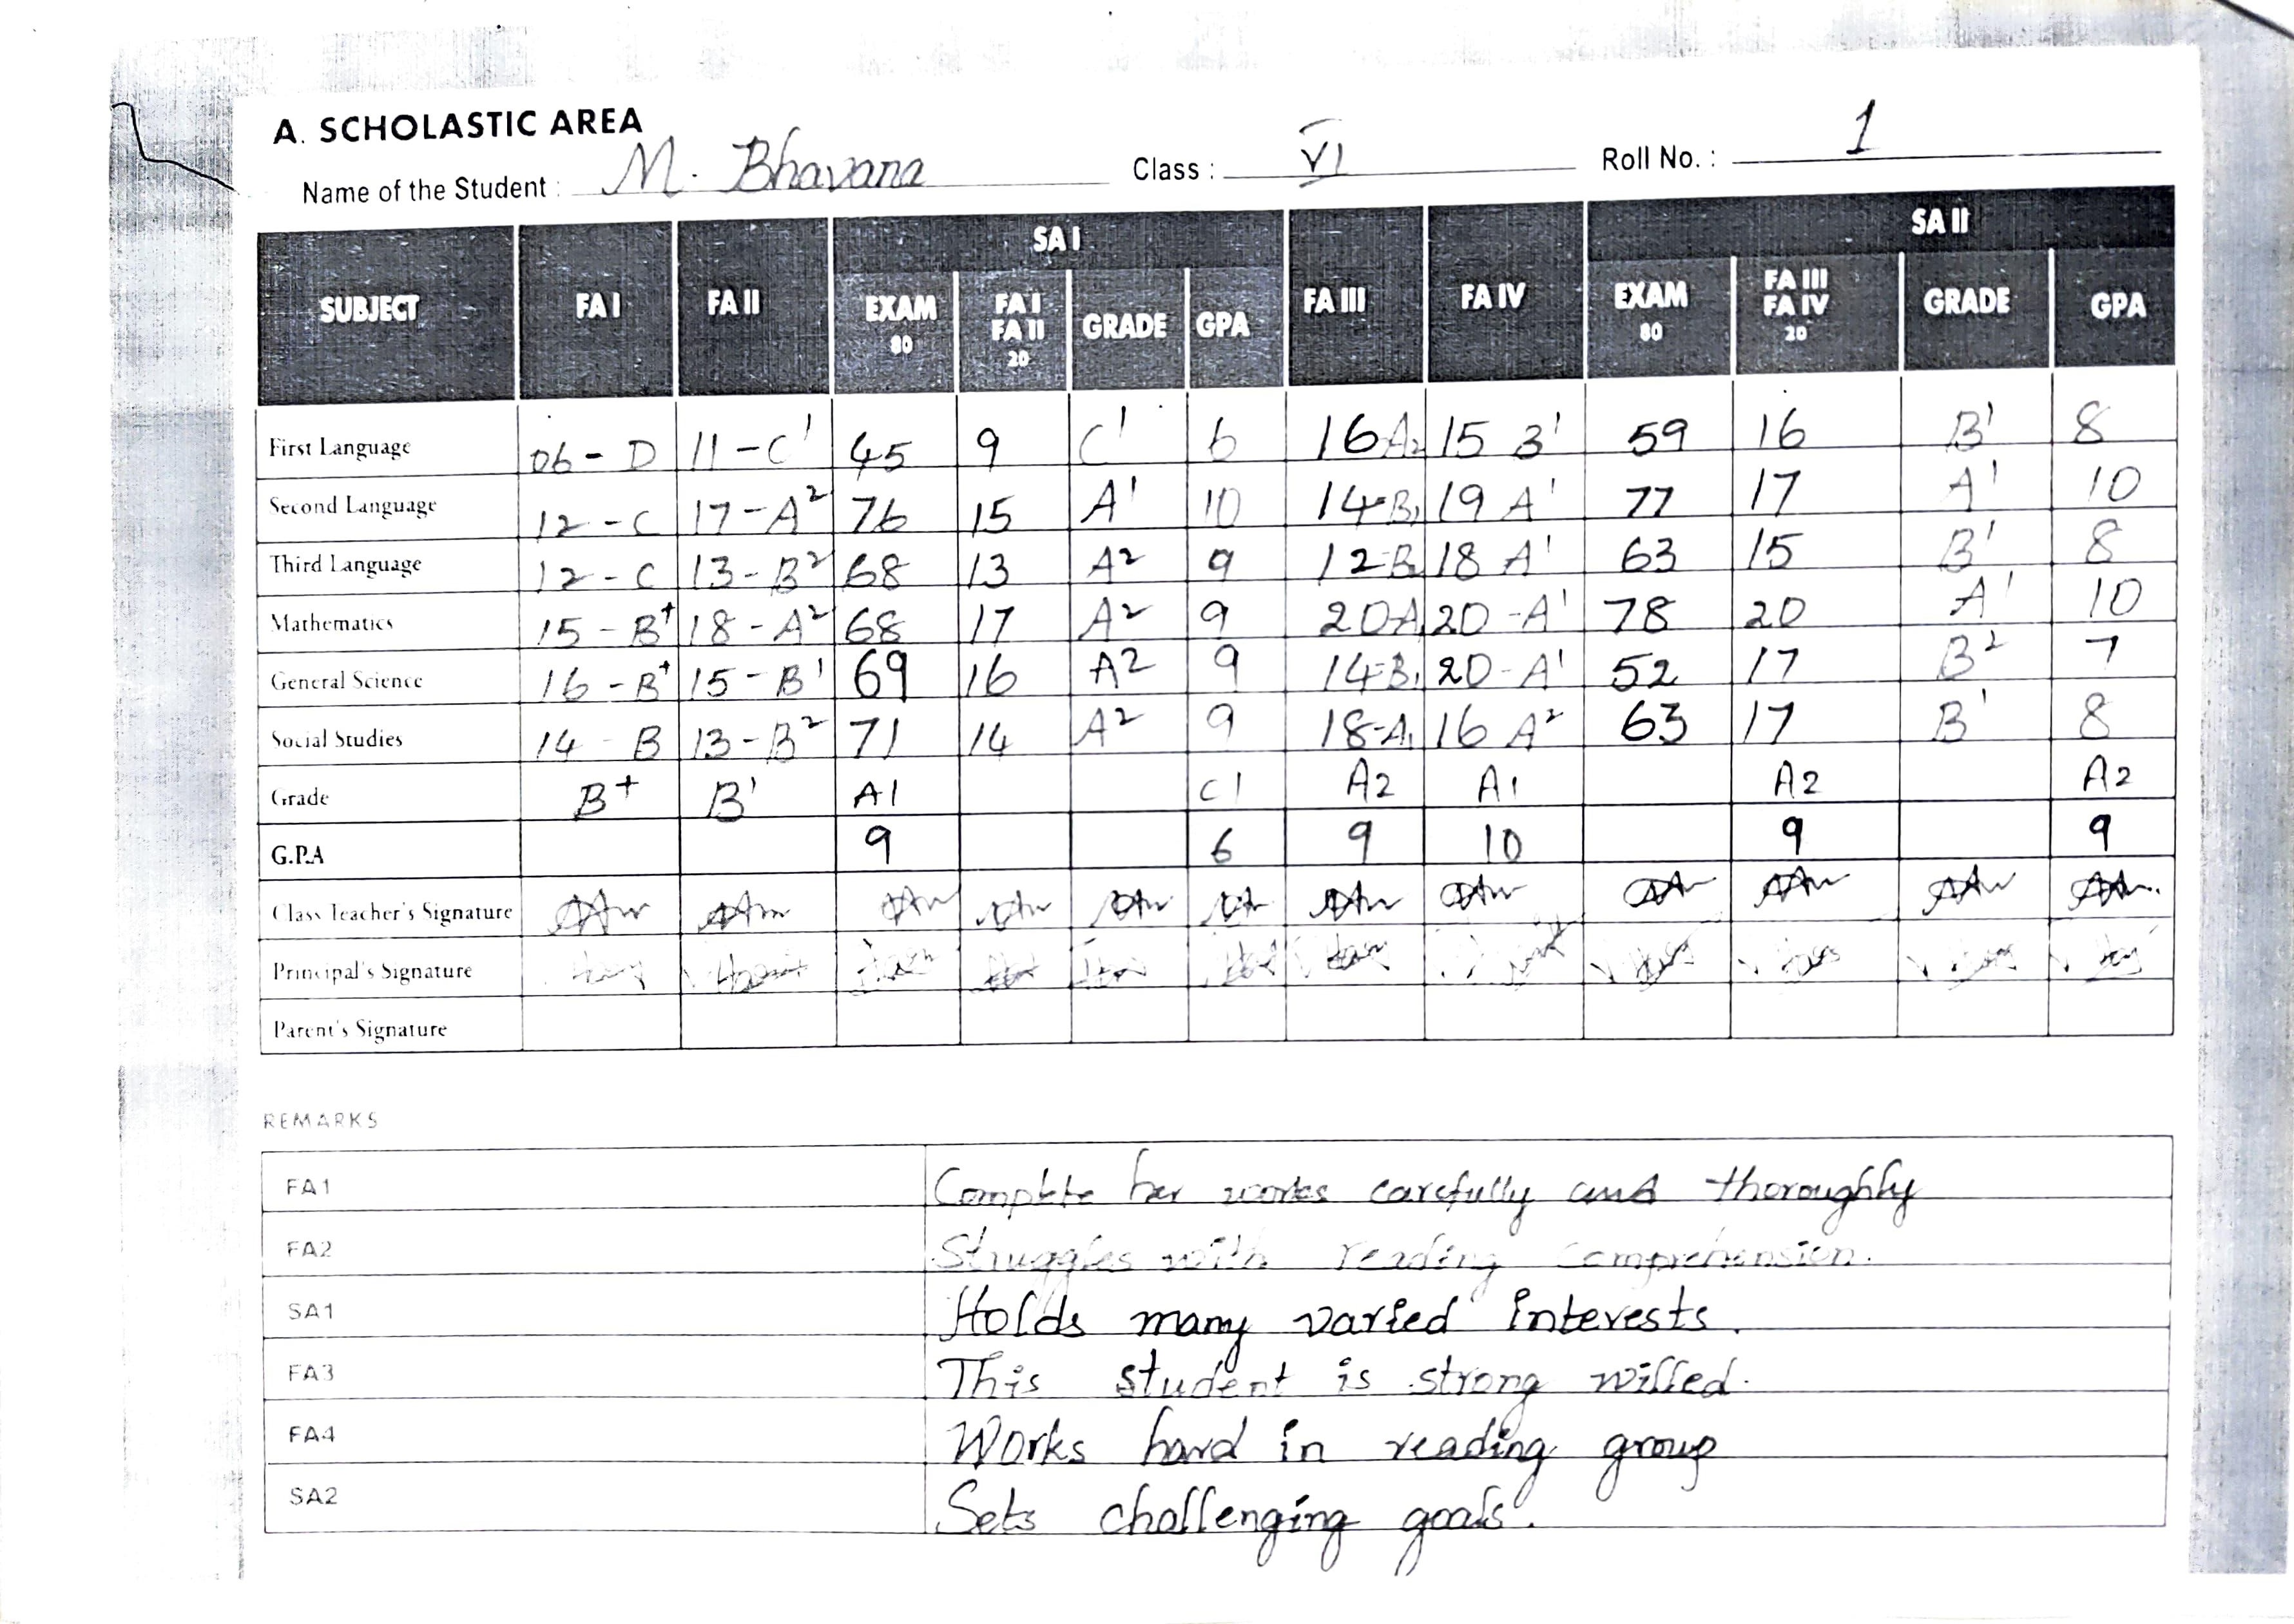 A. SCHOLASTIC AREA
Name of the Student : M. Bhavana Class : VI Roll No. : 1
SUBJECT FA I FA II SA I FA III FA IV SA II
EXAM 80 FA I FA II 20 GRADE GPA EXAM 80 FA III FA IV 20 GRADE GPA
First Language 06 - D 11 - C' 45 9 C' 6 16 A2 15 B' 59 16 B' 8
Second Language 12 - C 17 - A² 76 15 A' 10 14-B1 19 A' 77 17 A' 10
Third Language 12 - C 13 - B² 68 13 A2 9 12-B2 18 A' 63 15 B' 8
Mathematics 15 - B+ 18 - A² 68 17 A2 9 20-A1 20 - A' 78 20 A' 10
General Science 16 - B+ 15 - B' 69 16 A2 9 14-B1 20 - A' 52 17 B² 7
Social Studies 14 - B 13 - B² 71 14 A² 9 18-A1 16 A² 63 17 B' 8
Grade B+ B' A1 C1 A2 A1 A2 A2
G.P.A 9 6 9 10 9 9
Class Teacher's Signature
Principal's Signature
Parent's Signature
REMARKS
FA1 Complete her works carefully and thoroughly
FA2 Struggles with reading comprehension.
SA1 Holds many varied interests.
FA3 This student is strong willed.
FA4 Works hard in reading group
SA2 Sets challenging goals.